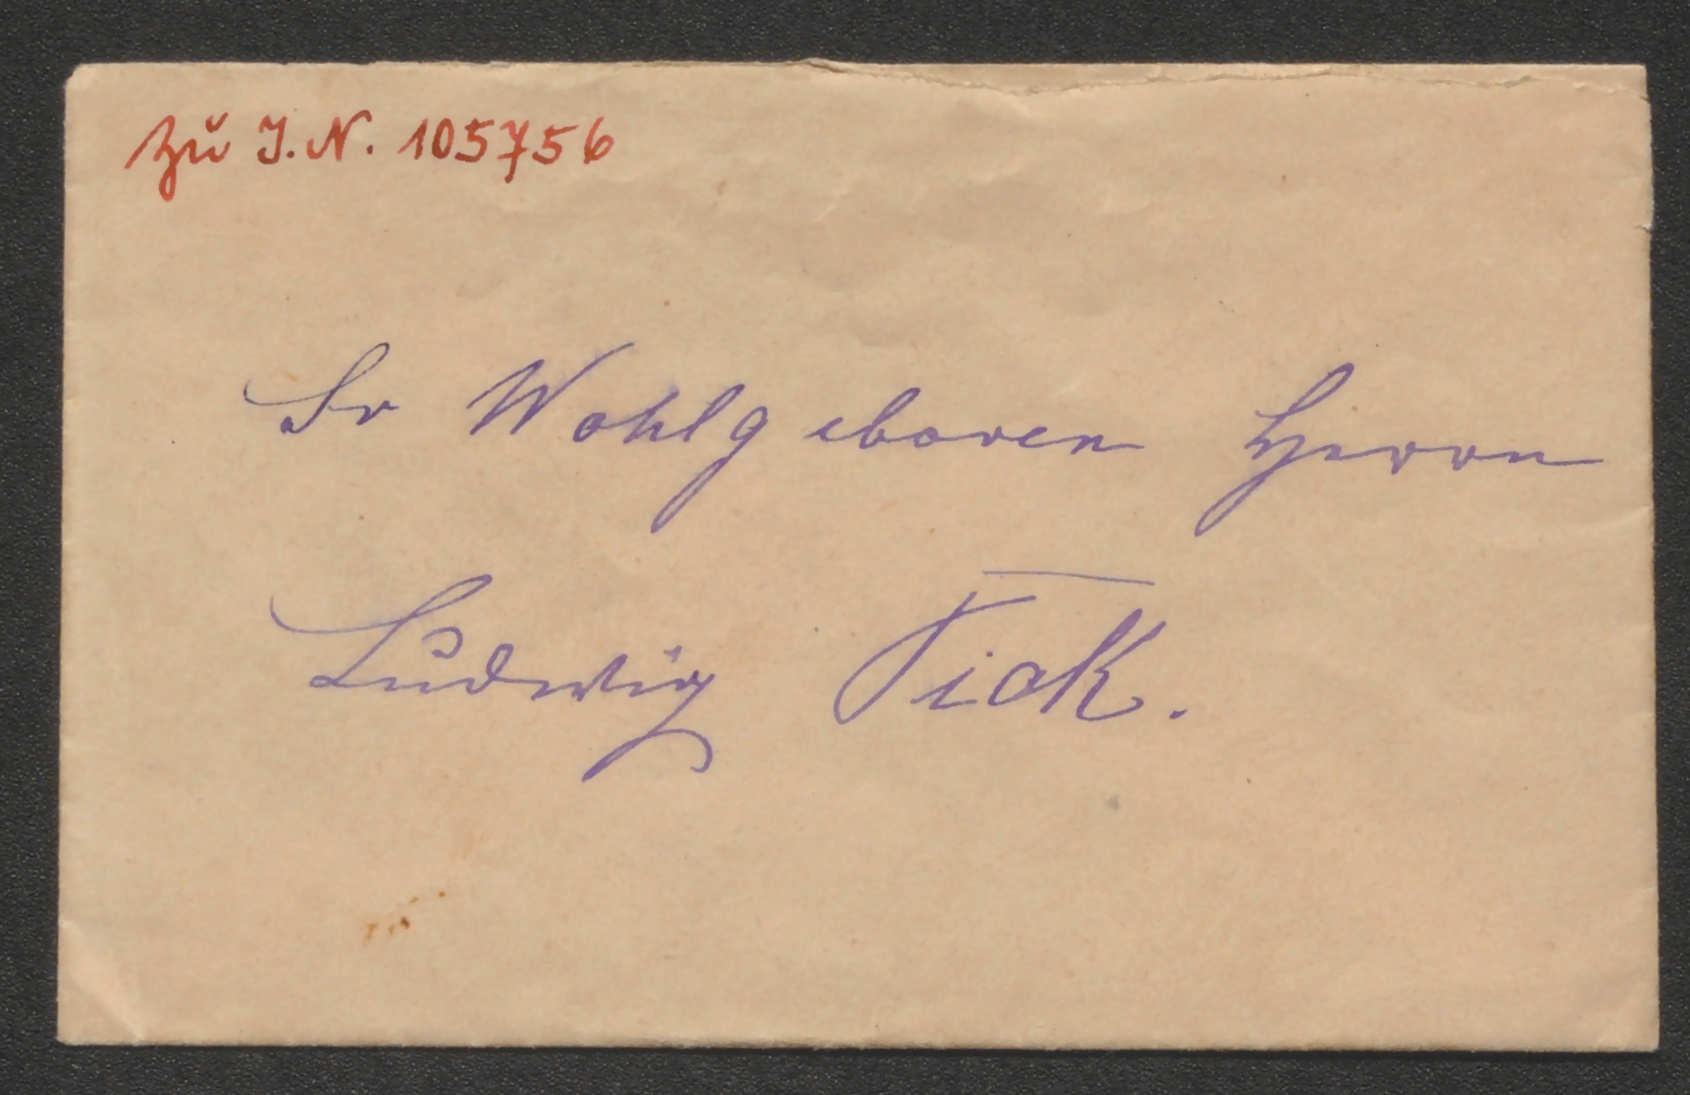 Zu I. N. 105756
Sr Wohlgeboren Herrn
Ludwig Fick.